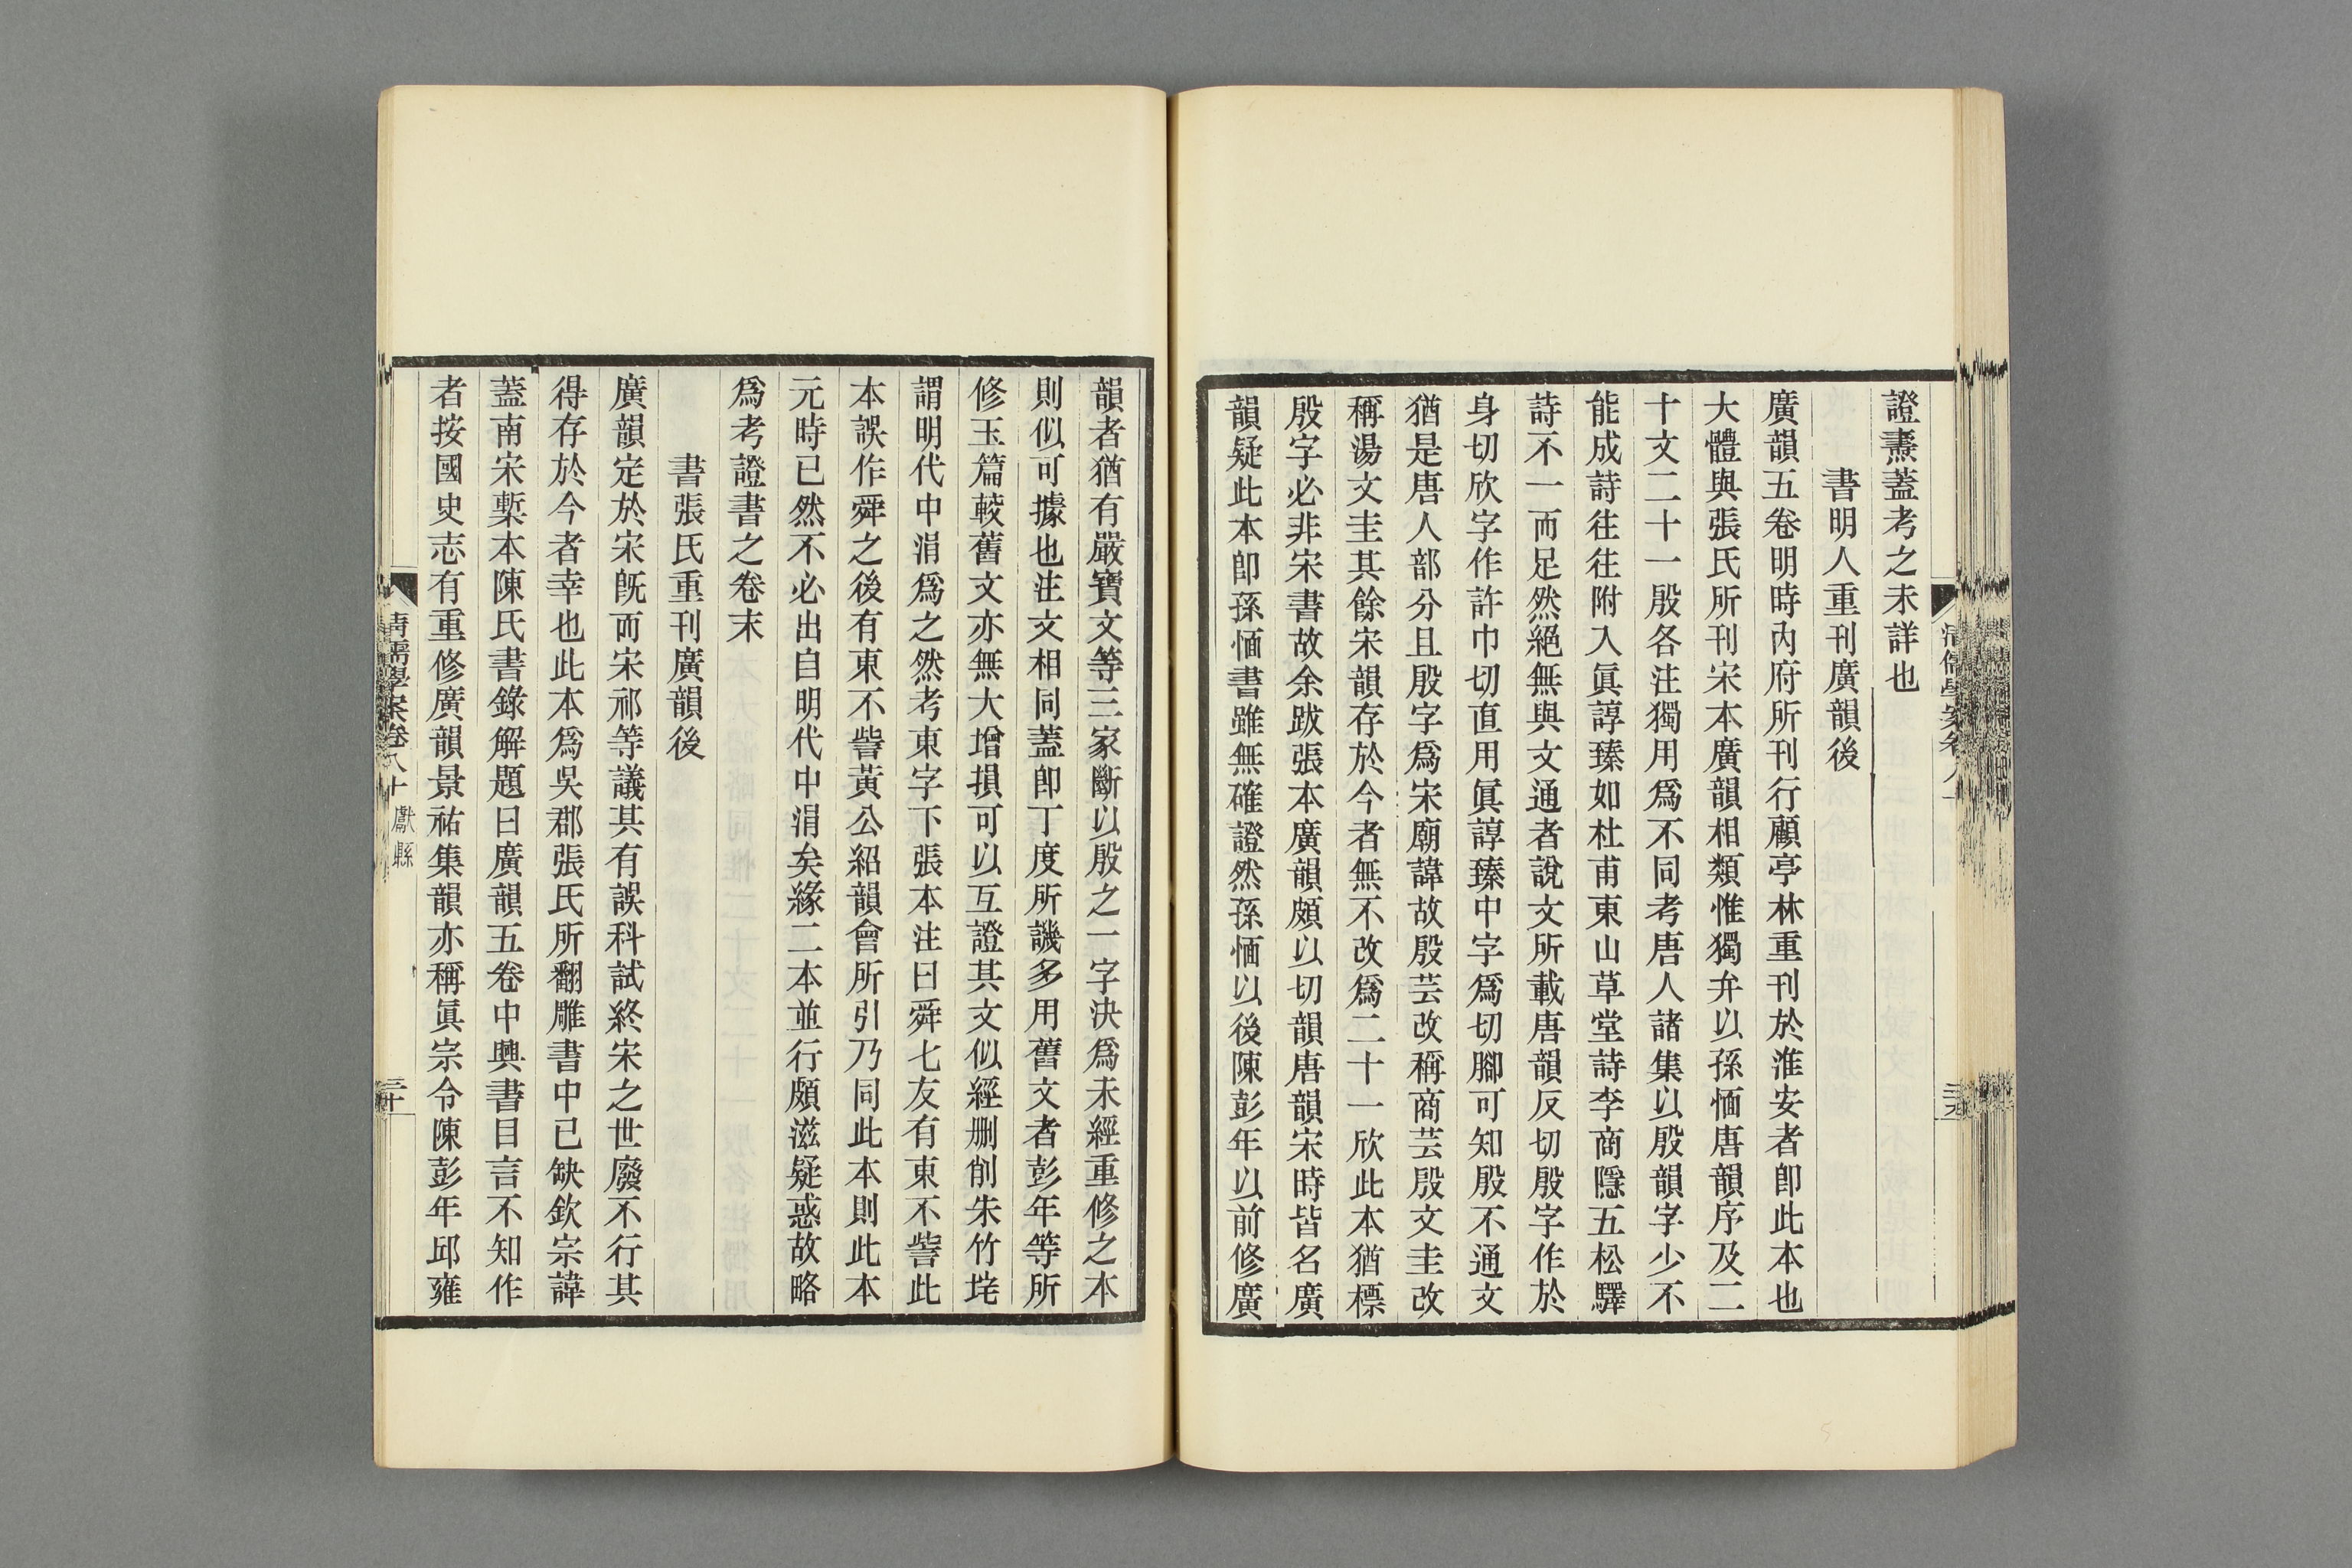 證燾蓋考之未詳也
書明人重刊廣韻後
廣韻五卷明時內府所刊行顧亭林重刊於淮安者卽此本也
大體與張氏所刊宋本廣韻相類惟獨弁以孫愐唐韻序及二
十文二十一殷各注獨用爲不同考唐人諸集以殷韻字少不
能成詩往往附入眞諄臻如杜甫東山草堂詩李商隱五松驛
詩不一而足然絕無與文通者說文所載唐韻反切殷字作於
身切欣字作許巾切直用眞諄臻中字爲切腳可知殷不通文
猶是唐人部分且殷字爲宋廟諱故殷芸改稱商芸殷文圭改
稱湯文圭其餘宋韻存於今者無不改爲二十一欣此本猶標
殷字必非宋書故余跋張本廣韻頗以切韻唐韻宋時皆名廣
韻疑此本卽孫愐書雖無確證然孫愐以後陳彭年以前修廣
韻者猶有嚴寶文等三家斷以殷之一字決爲未經重修之本
則似可據也注文相同蓋卽丁度所譏多用舊文者彭年等所
修玉篇較舊文亦無大增損可以互證其文似經刪削朱竹垞
謂明代中涓爲之然考東字下張本注曰舜七友有東不訾此
本誤作舜之後有東不訾黃公紹韻會所引乃同此本則此本
元時已然不必出自明代中涓矣緣二本並行頗滋疑惑故略
爲考證書之卷末
書張氏重刊廣韻後
廣韻定於宋旣而宋祁等議其有誤科試終宋之世廢不行其
得存於今者幸也此本爲吳郡張氏所翻雕書中已缺欽宗諱
蓋南宋槧本陳氏書錄解題曰廣韻五卷中興書目言不知作
者按國史志有重修廣韻景祐集韻亦稱眞宗令陳彭年邱雍
清儒學案卷八十 獻縣
三十